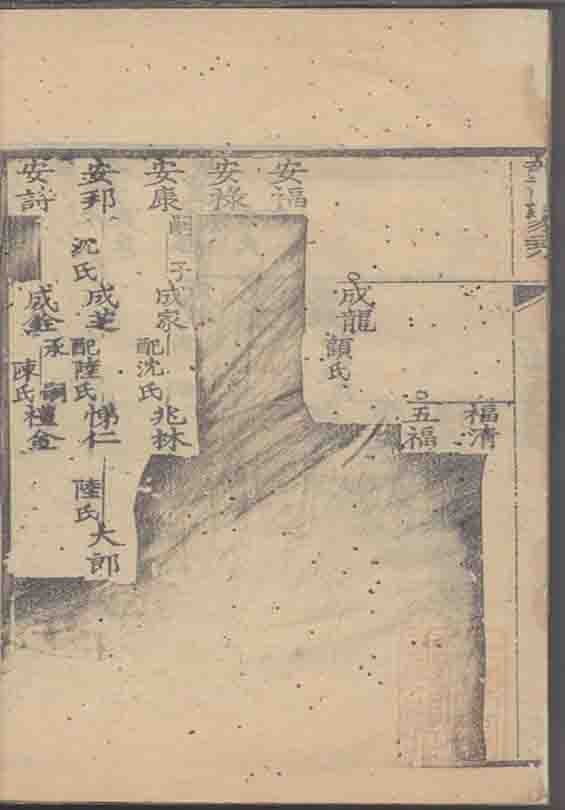 安福
安祿
安康
嗣
子
安邦
沈氏
安詩
成龍
顏氏
成家
配沈氏
成芝
配陸氏
成銓
承
嗣
陳氏
福清
五福
兆林
悌仁
陸氏
禮金
大郎